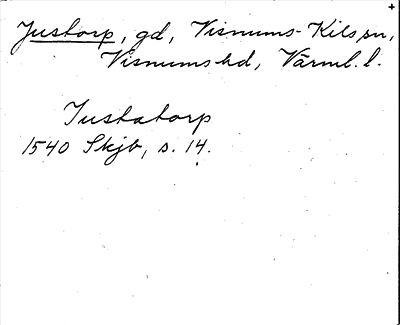 Justorp, gd, Visnums-Kils sn,
Visnums hd, Värml. l.
Justatorp
1540 Skjb, s. 14.